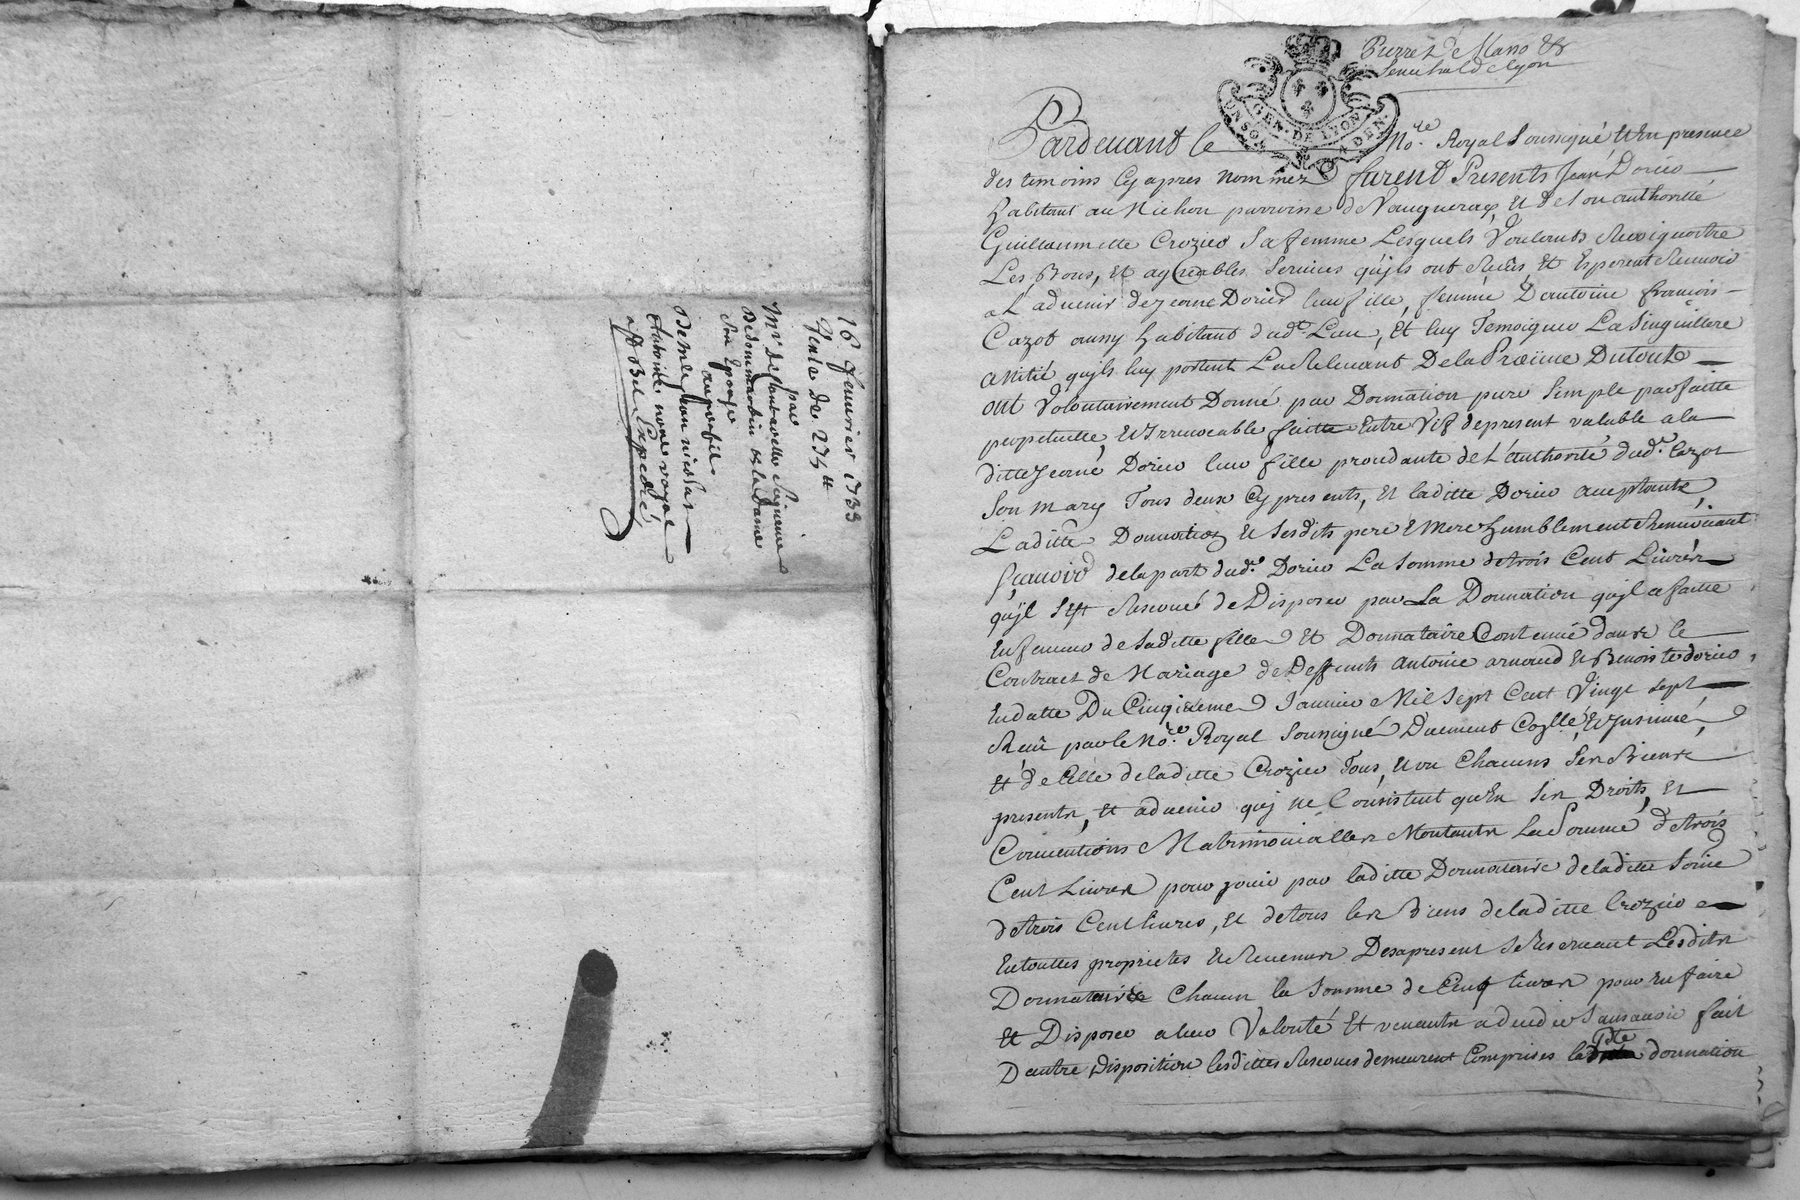 16 Janvier 1733
Vente de 234 tt
par
Mr de Chantarelle Seigneur
De dommartin & la dame
Son Epouse
au profit
De mre Jean nicolas
notaire royal
Expedié
GEN. DE LYON
Pardevant le No.re Royal Soussigné, Et En presence
des temoins Cy apres nommez furent Presents Jean Dorier
habitant au Michon parroisse de Vaugneray, Et de Son authorité
Guillaumette Crozier Sa femme Lesquels Voulants Reconnoitre
Les Bons, Et agreables Services qu'ils ont Reçus, Et Esperent Recevoir
a L'advenir de Jeanne Dorier leur fille, femme D'antoine françois
Cazot aussy habitant dud.t Lieu, Et luy Temoigner La Singuliere
amitié qu'ils luy portent La Relevant De la Preuve Dutout
ont Volontairement Donné par Donnation pure Simple parfaitte
perpetuelle, Et Irrevocable faitte Entre Vifs de present valable a la
ditte Jeanne Dorier leur fille procedante de L'authorité dud.t Cazot
Son mary Tous deux Cy presents, Et laditte Dorier acceptante
Laditte Donnation Et Sesdits pere Et Mere humblement Remerciant
Sçavoir de la part dud.t Dorier La Somme de trois Cent Livres
qu'jl S'est Reservé de Disposer par La Donnation qu'jl a faitte
En faveur de Saditte fille Et Donnataire Contenüe dans le
Contract de Mariage de Deffunts Antoine arnaud Et Benoiste dorier
En datte Du Cinqieme Janvier Mil Sept Cent Vingt Sept
Reçu par le No.re Royal Soussigné Duement Coll.é, Et Insinué,
Et de Celle de laditte Crozier Tous, Un Chacuns Ses Biens
presents, Et advenir quj ne Consistent qu'En Ses Droits, Et
Conventions Matrimonialles Montants La Somme de trois
Cent Livres pour jouir par laditte Donnataire de laditte Somme
de trois Cent livres, Et de tous les Biens de laditte Crozier
En touttes proprietés Et Revenus Desapresent Se Reservant Lesdits
Donnataire Chacun la Somme de Cinq livres pour En faire
Et Disposer a leur Volonté Et venants a deceder Sans avoir fait
D'autre Disposition lesdittes Reserves demeurent Comprises le pnte donnation